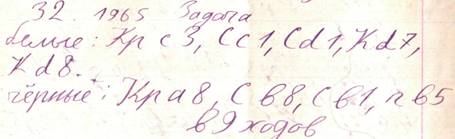 32. 1965 Задача
белые: Кр c3, Cc1, Cd1, Kd7,
Kd8.
чёрные: Кра8, С b8, С b1, п b5
в 9 ходов